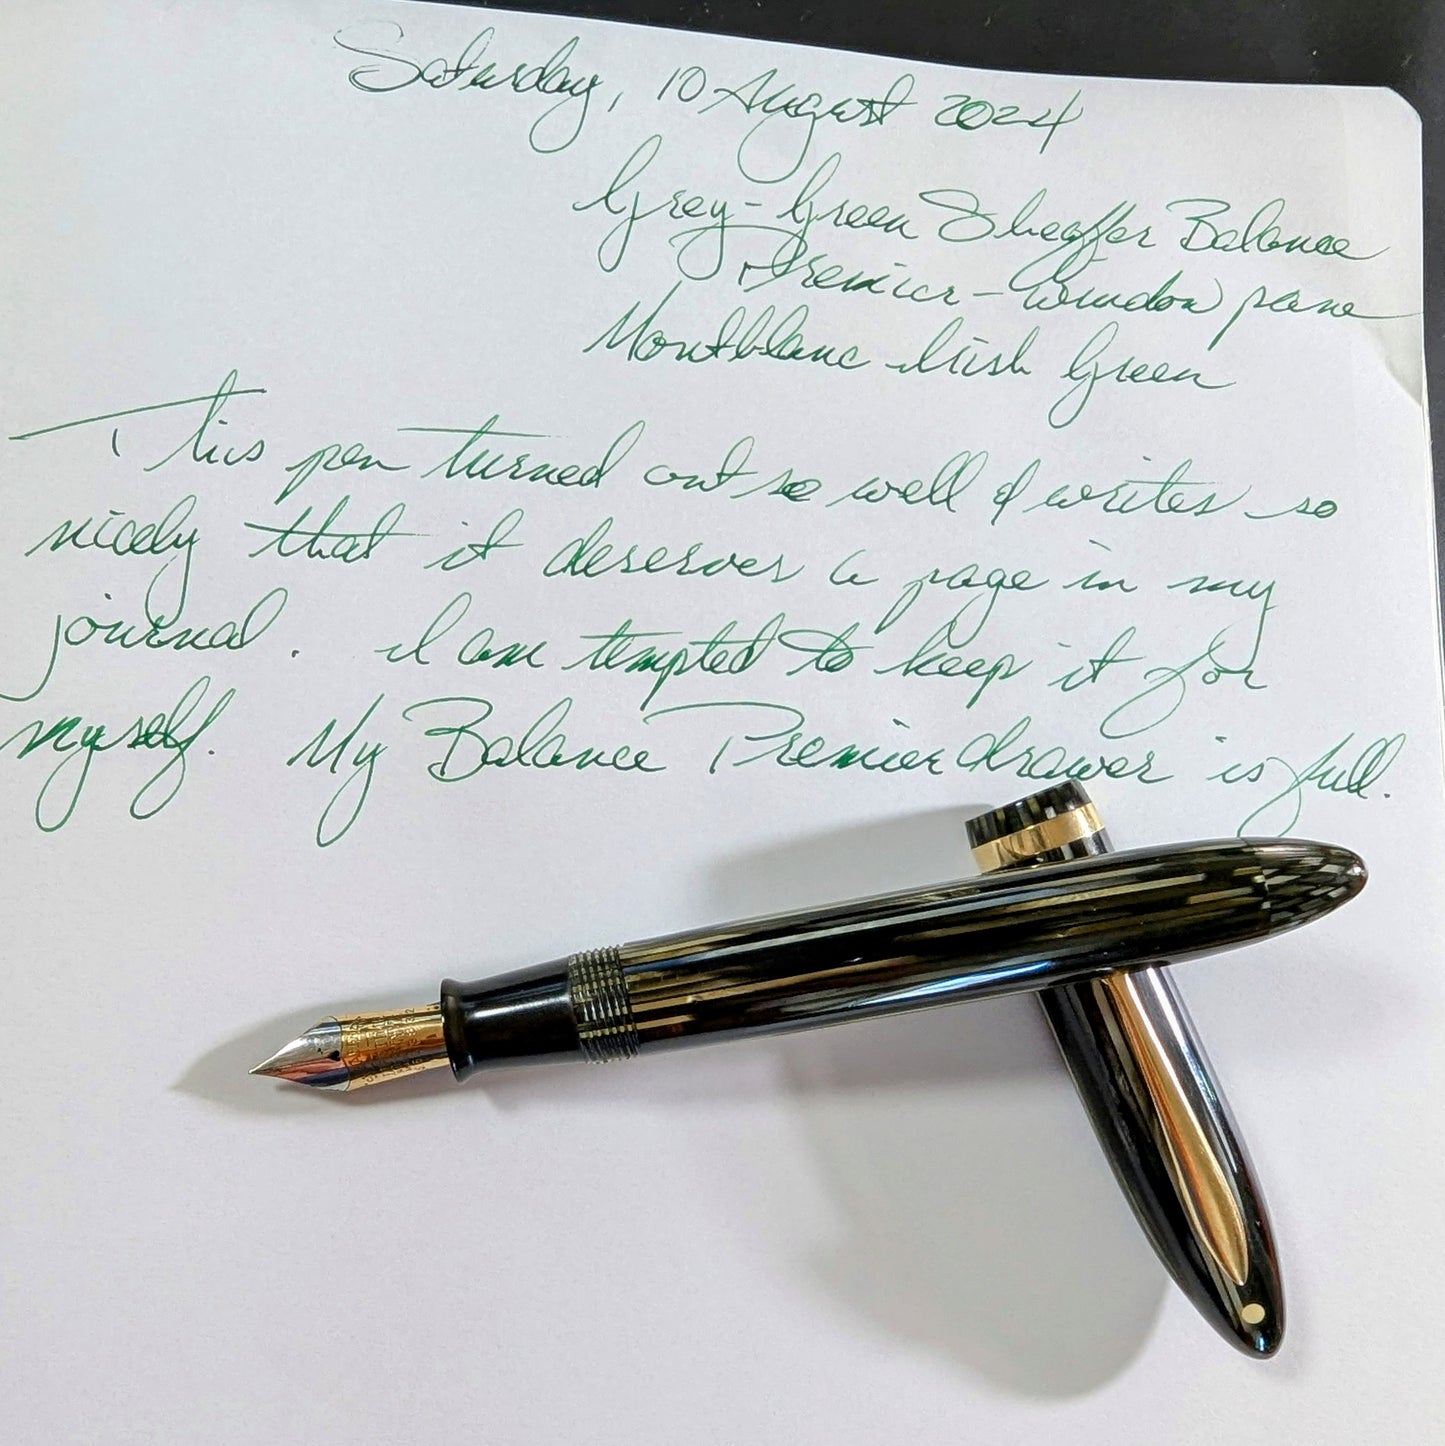 Saturday, 10 August 2024
Grey-Green Sheaffer Balance
Premier - Window pane
Montblanc Irish Green
This pen turned out so well & writes so
nicely that it deserves a page in my
journal. I am tempted to keep it for
myself. My Balance Premier drawer is full.